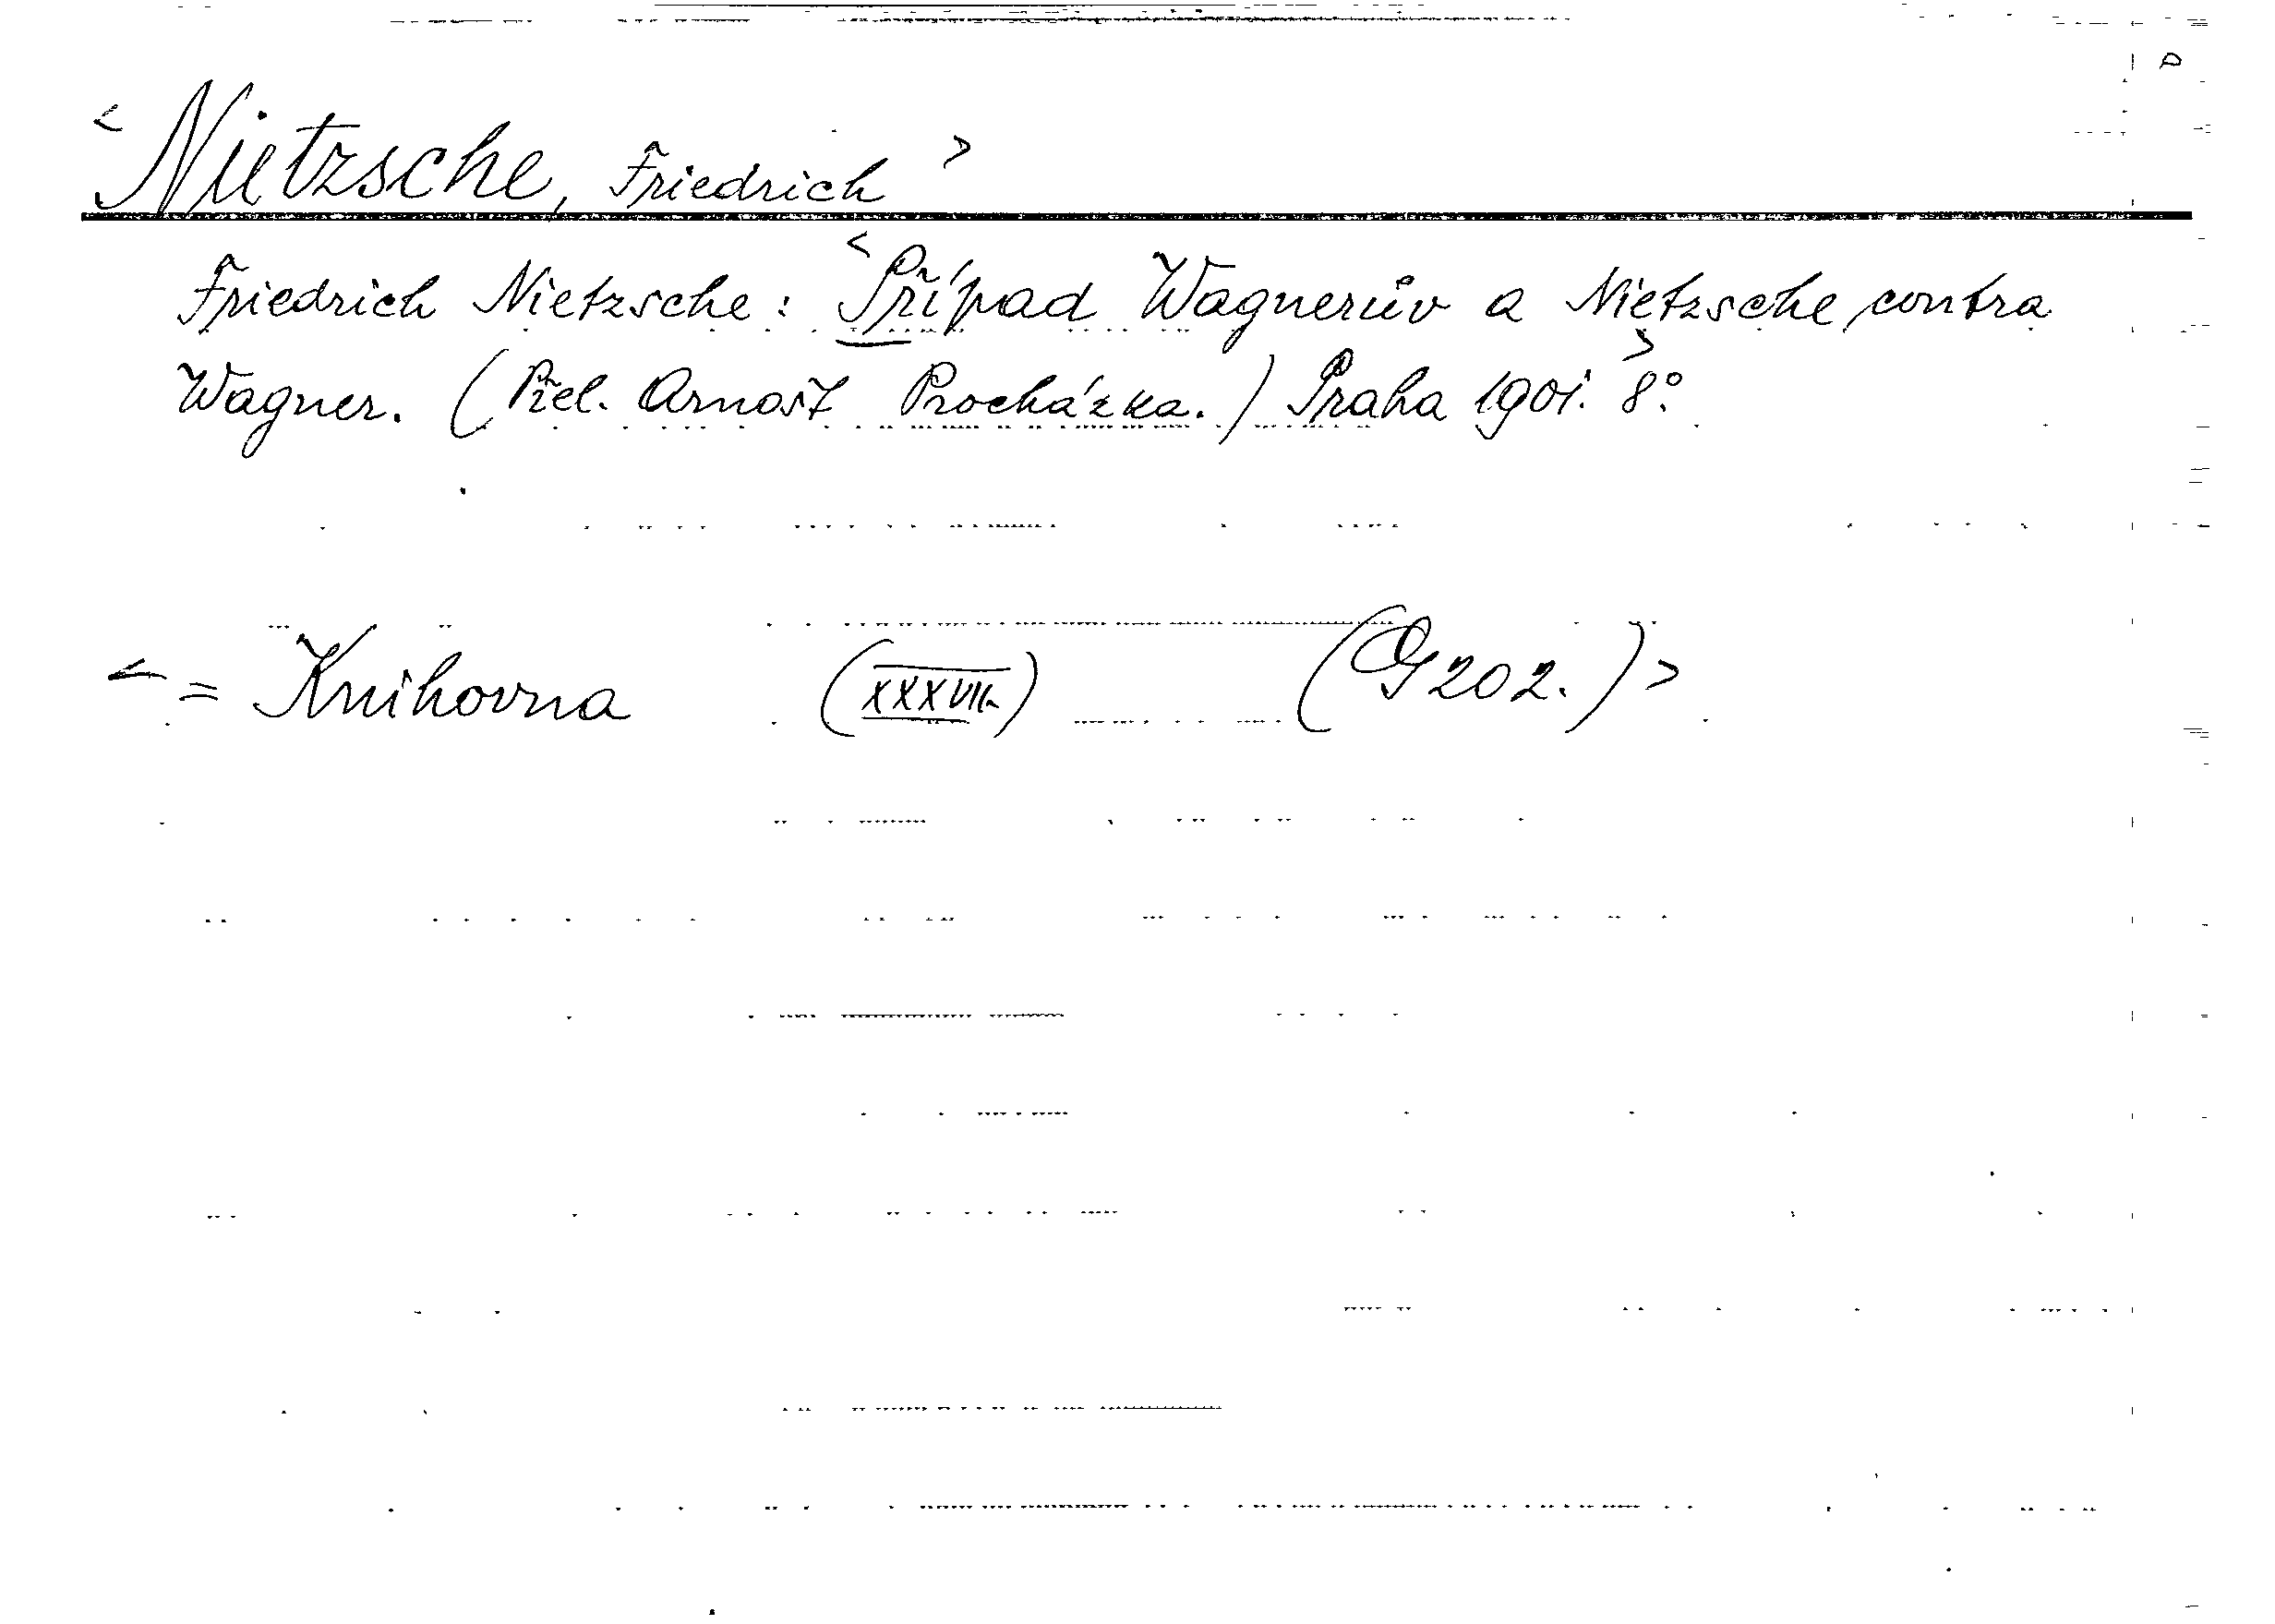 < Nietzsche, Friedrich >
Friedrich Nietzsche: < Případ Wagnerův a Nietzsche contra
Wagner. (Přel. Arnošt Procházka.) Praha 1901. 8°. >
< = Knihovna (XXXVII.) (G 202.) >